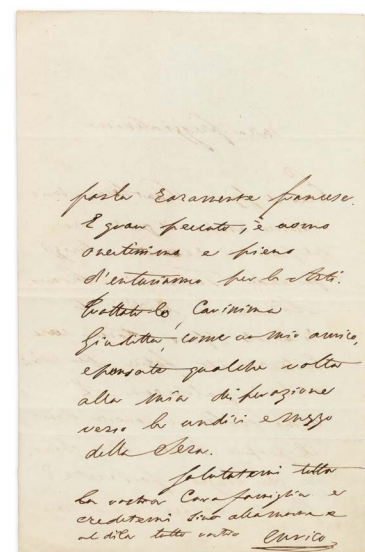 parla raramente francese.
È gran peccato, è uomo
onestissimo e pieno
d'entusiasmo per le Arti.
Trattatelo, Carissima
Giuditta, come un mio amico,
e pensate qualche volta
alla mia disperazione
verso le undici e mezzo
della Sera.
Salutatemi tutta
la vostra Cara famiglia e
credetemi sino alla morte e
al di là tutto vostro Enrico